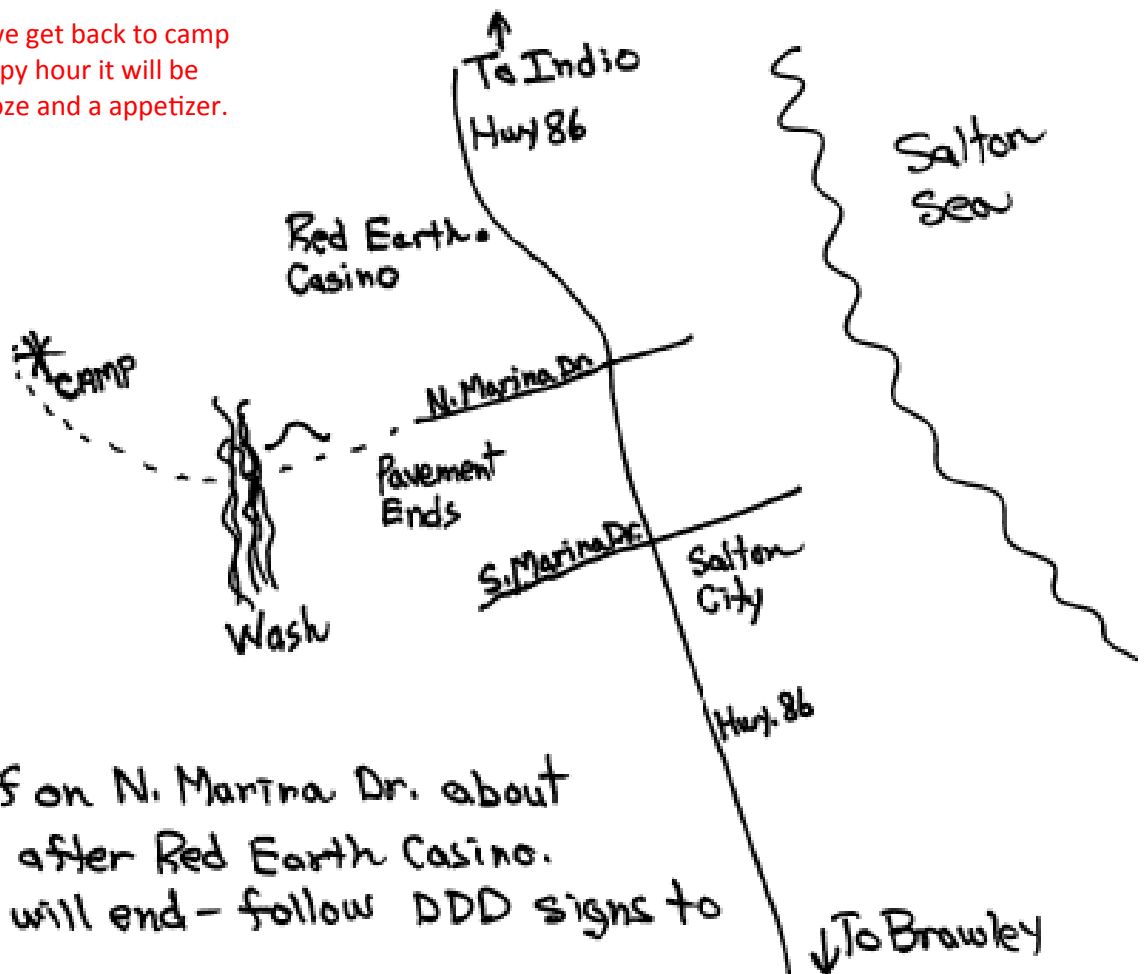 ve get back to camp
py hour it will be
oze and a appetizer.
To Indio
Hwy 86
Salton
Sea
Red Earth
Casino
CAMP
N. Marina Dr.
Pavement
Ends
S. Marina Dr.
Salton
City
Wash
Hwy. 86
f on N. Marina Dr. about
after Red Earth Casino.
will end - follow DDD signs to
To Brawley